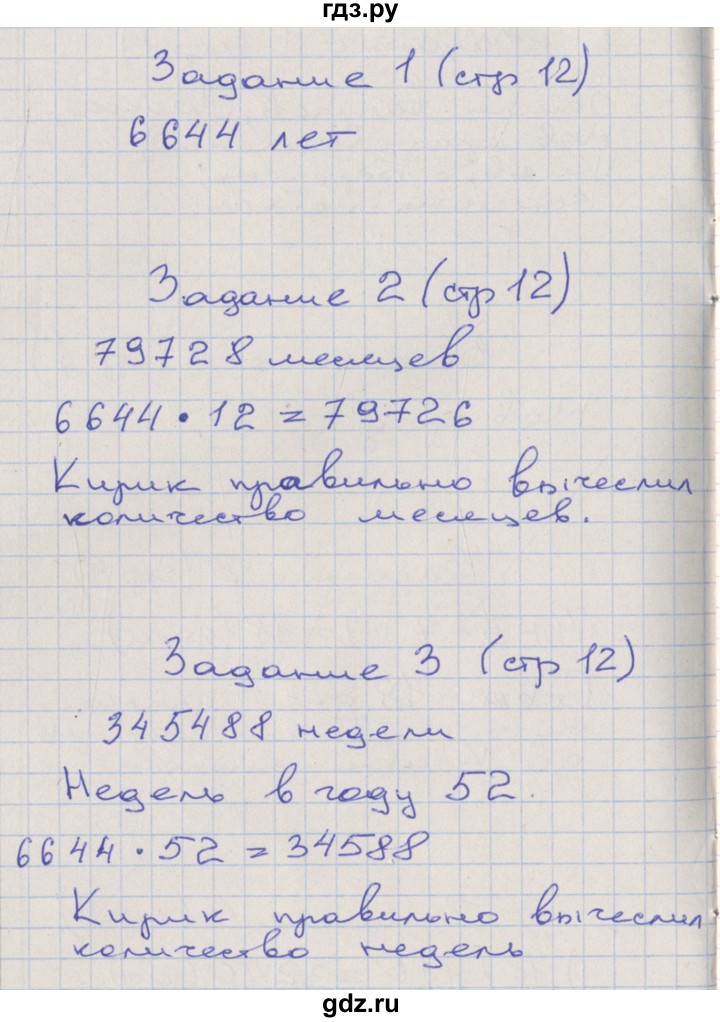 гдз.ру
Задание 1 (стр 12)
6644 лет
Задание 2 (стр 12)
79728 месяцев
6644 · 12 = 79726
Кирик правильно вычеслил
количество месяцев.
Задание 3 (стр 12)
345488 недели
Недель в году 52
6644 · 52 = 34588
Кирик правильно вычеслил
количество недель
gdz.ru